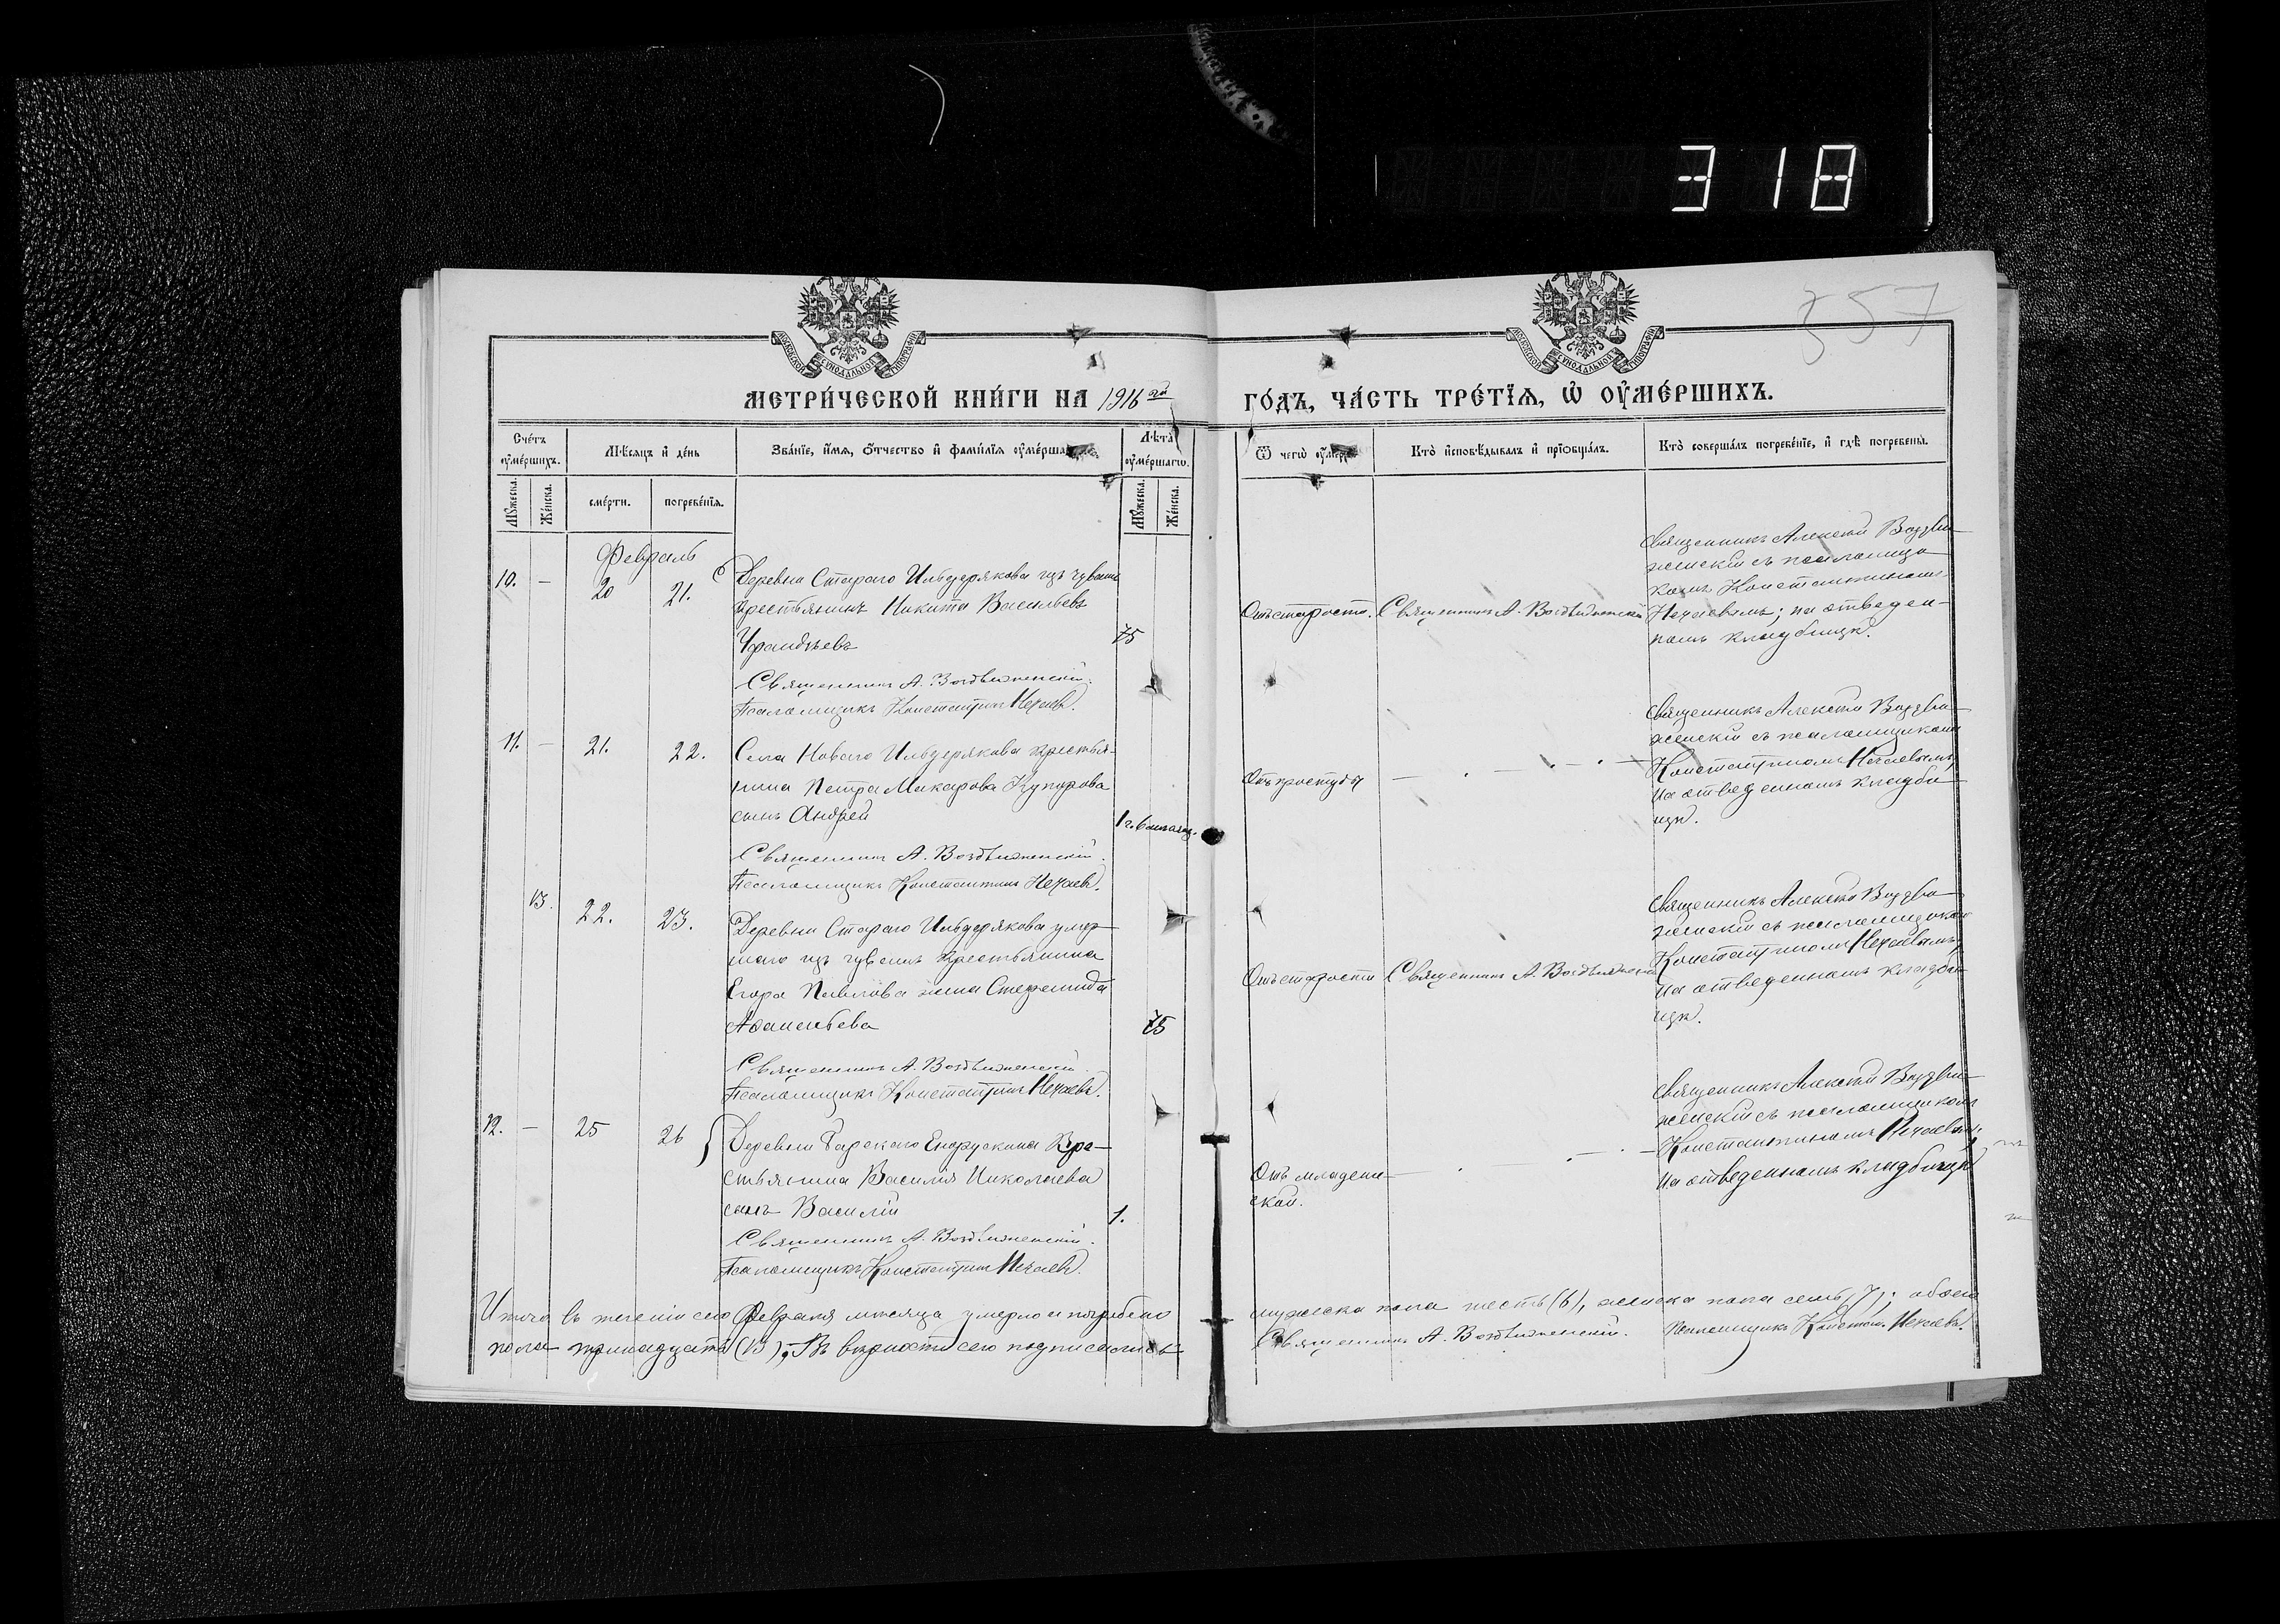 318
357
МОСКОВСКОЙ СѴНОДАЛЬНОЙ ТИПОГРАФІИ
МОСКОВСКОЙ СѴНОДАЛЬНОЙ ТИПОГРАФІИ
МЕТРИ́ЧЕСКОЙ КНИ́ГИ НА 1916 й
ГО́ДЪ, ЧА́СТЬ ТРЕ́ТЇѦ, Ѡ҆ ОУ҆МЕ́РШИХЪ.
Сче́тъ оу҆ме́ршихъ.
Мѣ́сяцъ и҆ де́нь
Зва́нїе, и҆́мя, ѻ҆́тчество и҆ фами́лїя оу҆ме́рша
Лѣ́та оу҆ме́ршагѡ.
Ѿ чегѡ̀ оу҆́мер
Кто̀ и҆сповѣ́дывалъ и҆ прїѡбща́лъ.
Кто̀ соверша́лъ погребе́нїе, и҆ гдѣ̀ погребены̀.
Мꙋ́жеска.
Же́нска.
сме́рти.
погребе́нїя.
Мꙋ́жеска.
Же́нска.
Февраль
10. — 20 21.
Деревни Стараго Ильдерякова изъ чувашъ
крестьянинъ Никита Васильевъ
75
Священникъ А. Воздвиженскій.
Псаломщикъ Константинъ Нечаевъ.
Отъ старости.
Священникъ А. Воздвиженскій
Священникъ Алексій Воздви
женскій съ псаломщи
комъ Константиномъ
Нечаевымъ; на отведен-
номъ кладбищѣ.
11. — 21. 22.
Села Новаго Ильдерякова крестья-
нина Петра Макарова
сынъ Андрей
1 г. 6 мѣсяц.
Священникъ А. Воздвиженскій.
Псаломщикъ Константинъ Нечаевъ.
Отъ простуды
Священникъ Алексій Воздви
женскій съ псаломщикомъ
Константиномъ Нечаевымъ,
на отведенномъ кладби
щѣ.
13. 22. 23.
Деревни Стараго Ильдерякова умер
шаго изъ чувашъ крестьянина
Егора Павлова жена Степанида
75
Священникъ А. Воздвиженскій.
Псаломщикъ Константинъ Нечаевъ.
Отъ старости
Священникъ А. Воздвиженскій
Священникъ Алексій Воздви
женскій съ псаломщикомъ
Константиномъ Нечаевымъ,
на отведенномъ кладби
щѣ.
12. — 25 26
Деревни Барскаго Енорускина Кре-
стьянина Василія Николаева
сынъ Василій
1.
Священникъ А. Воздвиженскій.
Псаломщикъ Константинъ Нечаевъ.
Отъ младенче
ской.
Священникъ Алексій Воздви
женскій съ псаломщикомъ
Константиномъ Нечаевым.
на отведенномъ кладбищѣ
Итого въ теченіи сего Февраля мѣсяца умерло и погребено
мужеска пола шесть (6), женска пола семь (7); обоего
пола тринадцать (13). Въ вѣрности сего подписались
Священникъ А. Воздвиженскій. Псаломщикъ Констан. Нечаевъ.